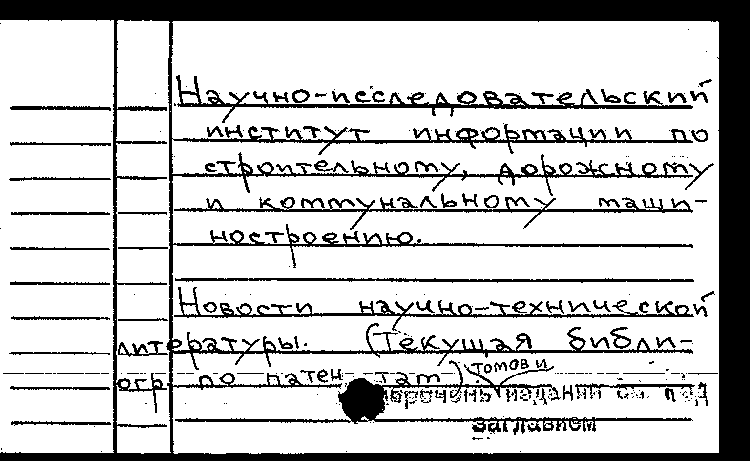 Научно-исследовательский
институт информации по
строительному, дорожному
и коммунальному маши-
ностроению.
Новости научно-технической
литературы. (Текущая библи-
огр. по патентам)
томов и
перечень изданий см. под
заглавием